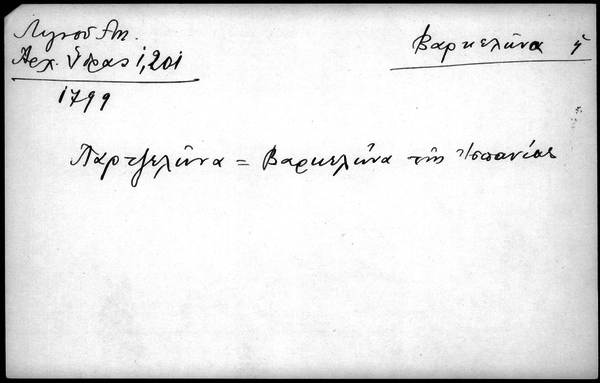 Λιγνοῦ Ἀπ.
Ἀρχ. Ὕδρας 1,201
1799
Βαρκελῶνα ἡ
Παρτζελῶνα = Βαρκελῶνα τῆς Ἱσπανίας